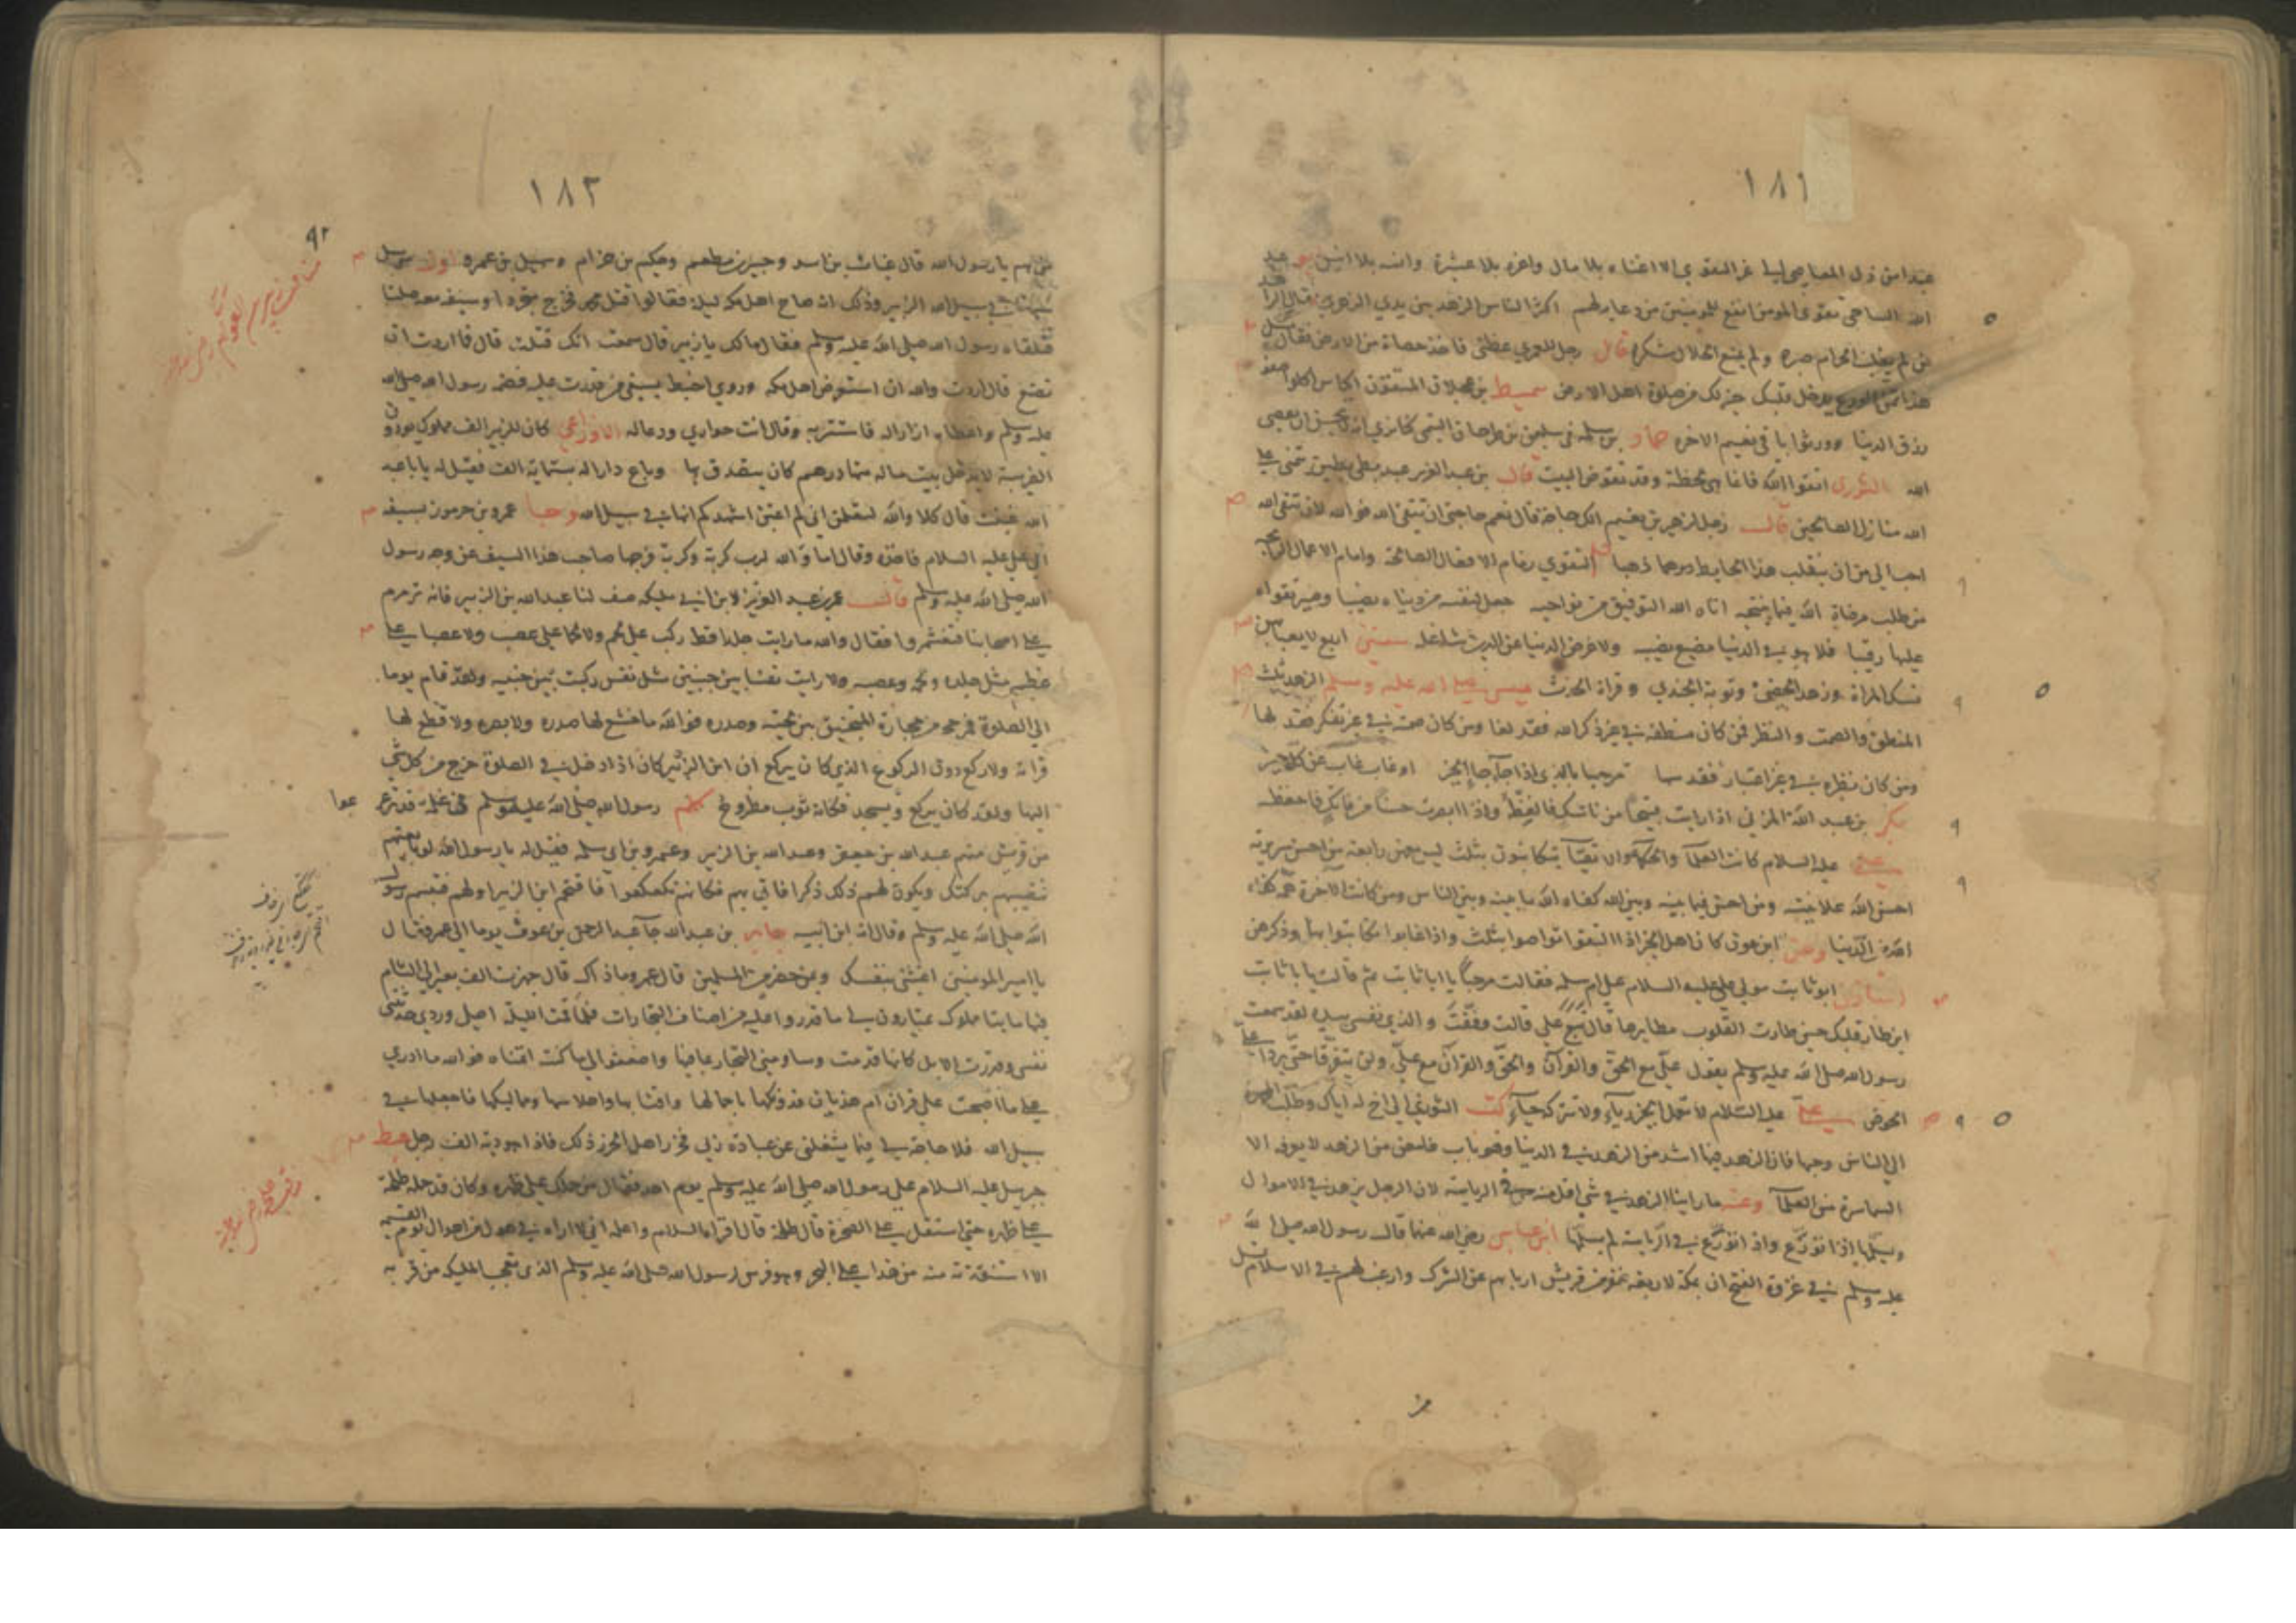 ١٨١
عبدا من ذل المعاصي الي عز التقوي الا اغناه بلا مال واعزه بلا عشيرة وانسه بلا انيس
الله الساحي تقوي المومن انفع للمومنين من دعاء لهم اكثر الناس الزهد بين يدي الزهري فقال الزاهد
من لم يغلب الحرام صبره ولم يمنع الحلال شكره قال رجل للعمري عظني فاخذ حصاة من الارض فقال مثل
هذا من الورع يدخل قلبك خير لك من صلوة اهل الارض سميط بن عجلان المتقون اكياس اكلوا صفو
رزق الدنيا وورثوا باقي نعيم الاخرة حماد بن سلمة في سليمن بن طرخان التيمي كنا نري انه لا يحسن ان يعصي
الله الثوري اتقوا الله قال بن عبد العزيز
الله منازل الصالحين قال رجل لزهير بن نعيم الك حاجة قال نعم حاجتي ان تتقي الله فوالله لان تتقي الله
احب الي من ان ينقلب هذا الحايط دوما ذهبا التقوي زمام الافعال الصالحة وامام الاعمال الرابحة
من طلب مرضاة الله فيما ينتحيه اتاه الله التوفيق من نواحيه جعل لنفسه من دنياه نصيبا وصير تقواه
عليها رقيبا فلا هو في الدنيا مضيع نصيبه ولا عرض الدنيا عن الدين شاغله سفين اربع لا يعبا بهن
نسك المراة وزهد الخصي وتوبة الجندي وقراة الحدث عيسي صلي الله عليه وسلم الزهد ثلث
المنطق والصمت والنظر فمن كان منطقه في غير ذكر الله فقد لغا ومن كان صمته في غير تفكر فقد لها
ومن كان نظره في غير اعتبار فقد سها مرحبا بالذي اذا جآء جآء الخير او غاب غاب عن كل خير
بكر بن عبد الله المزني اذا رايت قبيحا من ناسك فالفظه واذا ابصرت حسنا من فاتك فاحفظه
علي عليه السلام كانت العلمآ والحكمآ والاتقيآ يتكاتبون بثلث ليس معهن رابعة من احسن سريرته
احسن الله علانيته ومن احسن فيما بينه وبين الله كفاه الله ما بينه وبين الناس ومن كانت الآخرة همّه كفاه
الله همّ الدّنيا وعن ابن عون كان اهل الخير اذا التقوا تواصوا بثلث واذا غابوا تكاتبوا بها وذكرهن
استاذن ابو ثابت مولي علي عليه السلام علي ام سلمة فقالت مرحباً يا ابا ثابت ثم قالت يا با ثابت
اين طار قلبك حين طارت القلوب مطايرها قال تبع علي قالت وفقت والذي نفسي بيده لقد سمعت
رسول الله صلي الله عليه وسلم يقول علي مع الحق والقرآن والحق والقرآن مع علي ولن يتفرقا حتي يردا علي
الحوض علي عليه السّلام لا تعمل الخير ريآء ولا تتركه حيآء كتب الثوري الي اخ له اياك وطلب المحمدة
الي الناس وحبها فان الزهد فيها اشد من الزهد في الدنيا وهو باب غامض من الزهد لا يعرفه الا
السماسرة من العلمآ وعنه ما راينا الزهد في شي اقل منه في الرياسة لان الرجل يزهد في الاموال
ويسلمها اذا نوزع واذا نوزع في الرّياسة لم يسلّمها ابن عباس رضي الله عنهما قال رسول الله صلي الله
عليه وسلم في غزوة الفتح ان بمكة لاربعة نفر من قريش اربا بهم عن الشرك وارغب لهم في الاسلام قيل
١٨٢
من هم يا رسول الله قال عتاب بن اسد وجبير بن مطعم وحكيم بن حزام وسهيل بن عمرو اول من سل
سيفا في سبيل الله الزبير وذلك انه صاح اهل مكة ليلا فقالوا قتل محمد فخرج متجردا وسيفه معه صلتا
فتلقاه رسول الله صلي الله عليه وسلم فقال مالك يا زبير قال سمعت انك قتلت قال فما اردت ان
تصنع قال اردت والله ان استعرض اهل مكة وروي اخبط بسيفي من قدرت عليه فضمه رسول الله صلي الله
عليه وسلم واعطاه ازارا له فاستتر به وقال انت حواري ودعا له الاوزاعي كان للزبير الف مملوك يودون
الضريبة لا يدخل بيت ماله منها درهم كان يتصدق بها وباع دارا له بستماية الف فقيل له يا با عبد
الله غبنت قال كلا والله لتعلمن اني لم اغبن اشهدكم انها في سبيل الله وجا عمرو بن جرموز بسيفه
الي علي عليه السلام فاخذه وقال اما والله لرب كربة وكربة فرجها صاحب هذا السيف عن وجه رسول
الله صلي الله عليه وسلم قال عمر بن عبد العزيز لابن ابي مليكة صف لنا عبد الله بن الزبير فانه ترمرم
علي اصحابنا فتغشمروا فقال والله ما رايت جلدا قط ركب علي لحم ولا لحما علي عصب ولا عصبا علي
عظم مثل جلده ولحمه وعصبه ولا رايت نفسا بين جنبين مثل نفس ركبت بين جنبيه ولقد قام يوما
الي الصلوة فمر حجر من حجارة المنجنيق بين لحيته وصدره فوالله ما خشع لها صدره ولا بصره ولا قطع لها
قراة ولا ركع دون الركوع الذي كان يركع ان ابن الزبير كان اذا دخل في الصلوة خرج من كل شي
اليها ولقد كان يركع ويسجد فكانه ثوب مطروح كلم رسول الله صلي الله عليه وسلم في غلمة قد ترعرعوا
من قريش منهم عبد الله بن جعفر وعبد الله بن الزبير وعمرو بن ابي سلمة فقيل له يا رسول الله لو بايعتهم
فتصيبهم بركتك ويكون لهم ذلك ذكرا فاتي بهم فكانهم تكعكعوا فاقتحم ابن الزبير اولهم فتبسم رسول
الله صلي الله عليه وسلم وقال انه ابن ابيه جابر بن عبد الله جآ عبد الرحمن بن عوف يوما الي عمر فقال
يا امير المومنين اغثني بنفسك وبمن حضر من المسلمين قال عمر وما ذاك قال جهزت الف بعير الي الشام
فيها مايتا مملوك يمتارون لي ما قدروا عليه من اصناف التجارات فلما قمت الليلة اصلي وردي حدثتني
نفسي وقدرت الابل كانها قدمت وساومني التجار بما فيها واضعفوا لي ما كنت اتمناه فوالله ما ادري
علي ما اصبحت علي قران ام هذيان فدونكها باجمالها واقتابها واحلاسها ومماليكها فاجعلها في
سبيل الله فلا حاجة لي فيما يشغلني عن عبادة ربي فحزر اهل الحزر ذلك فاذا هو دية الف رجل هبط
جبريل عليه السلام علي رسول الله صلي الله عليه وسلم يوم احد فقال من حملك علي ظهره وكان قد حمله طلحة
علي ظهره حتي استقل علي الصخرة قال طلحة قال اقراه السلام واعلمه اني لا اراه في هول من اهوال يوم القيمة
الا استنقذته منه من هذا علي وهو فرس رسول الله صلي الله عليه وسلم الذي تعجب الملايكة من قربه